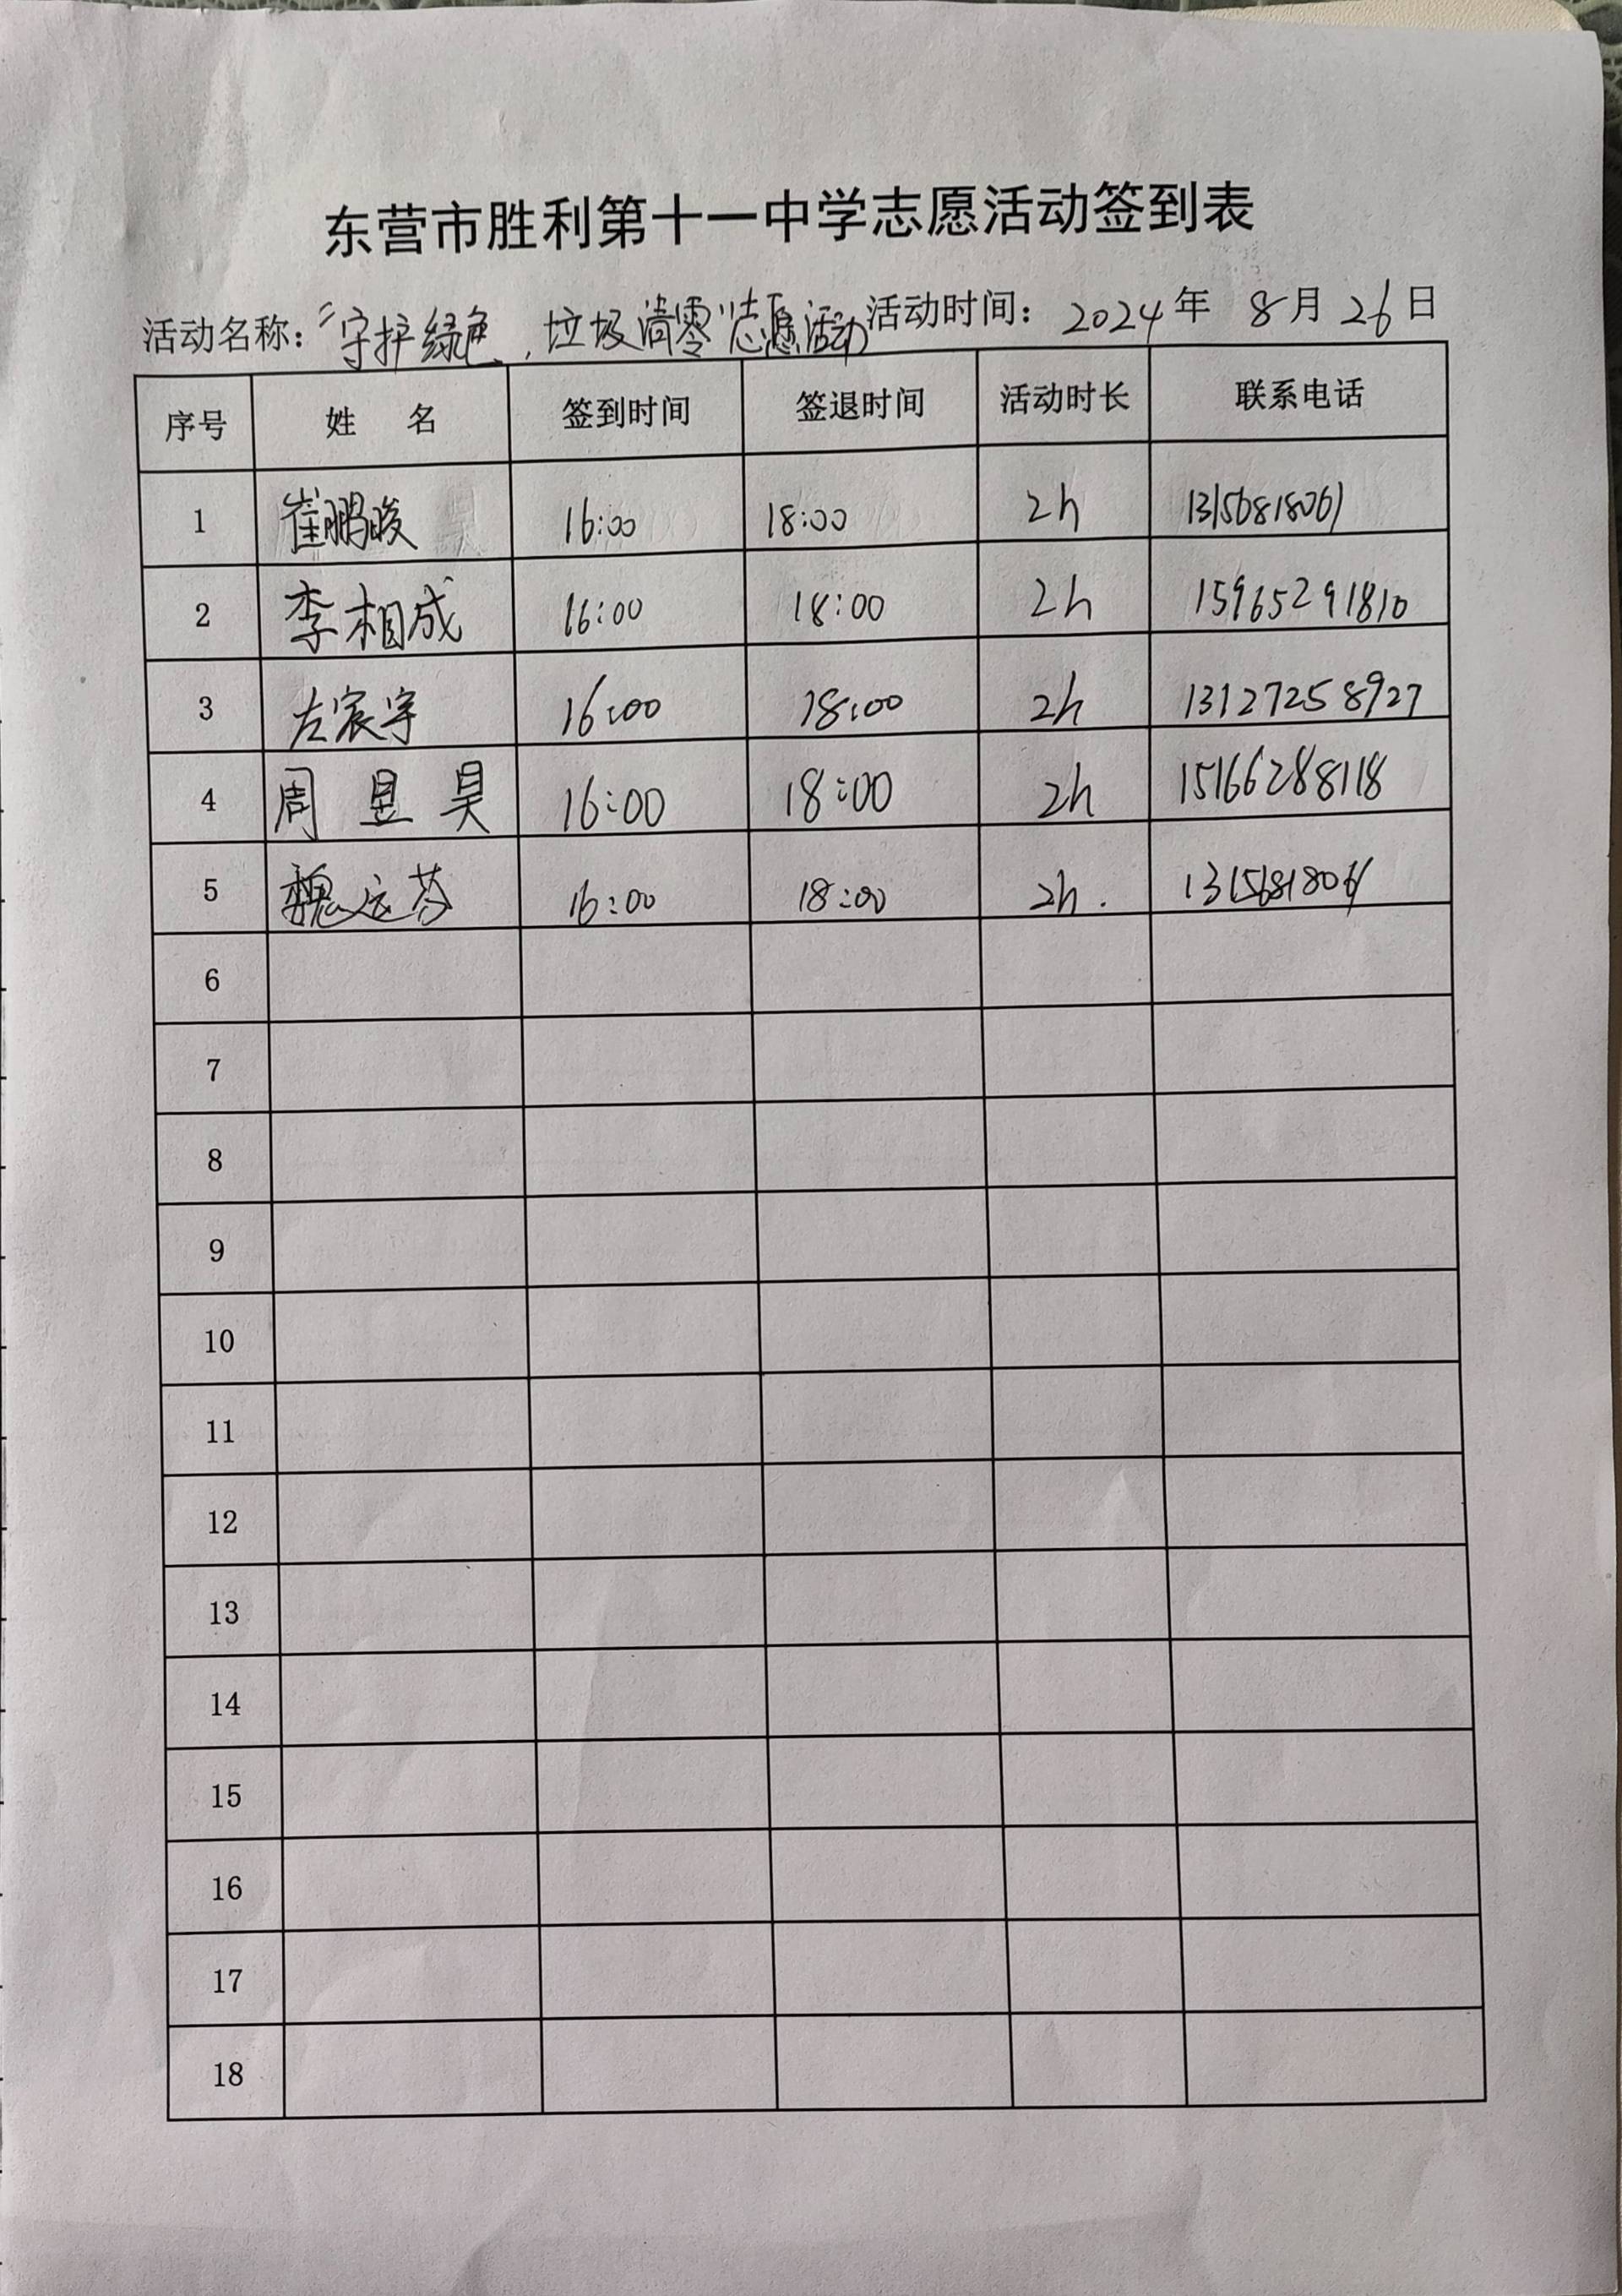 东营市胜利第十一中学志愿活动签到表
活动名称：“守护绿色，垃圾清零”志愿活动 活动时间： 2024 年 8 月 26 日
序号 姓 名 签到时间 签退时间 活动时长 联系电话
1 崔鹏骏 16:00 18:00 2h 13156818061
2 李相成 16:00 18:00 2h 15965291810
3 左宸宇 16:00 18:00 2h 13127258927
4 周昱昊 16:00 18:00 2h 15166288118
5 魏运芬 16:00 18:00 2h. 13156818061
6
7
8
9
10
11
12
13
14
15
16
17
18